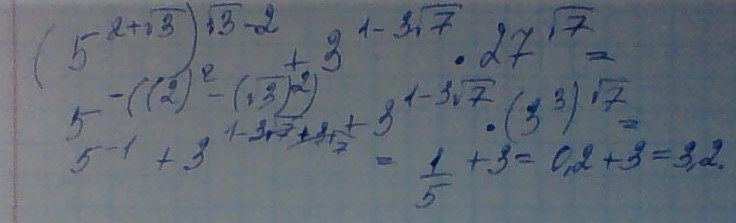 (5^{2+√3})^{√3-2} + 3^{1-3√7} · 27^{√7} =
5^{-((2)^2-(√3)^2)} + 3^{1-3√7} · (3^3)^{√7} =
5^{-1} + 3^{1-3√7+3√7} = 1/5 + 3 = 0,2 + 3 = 3,2.